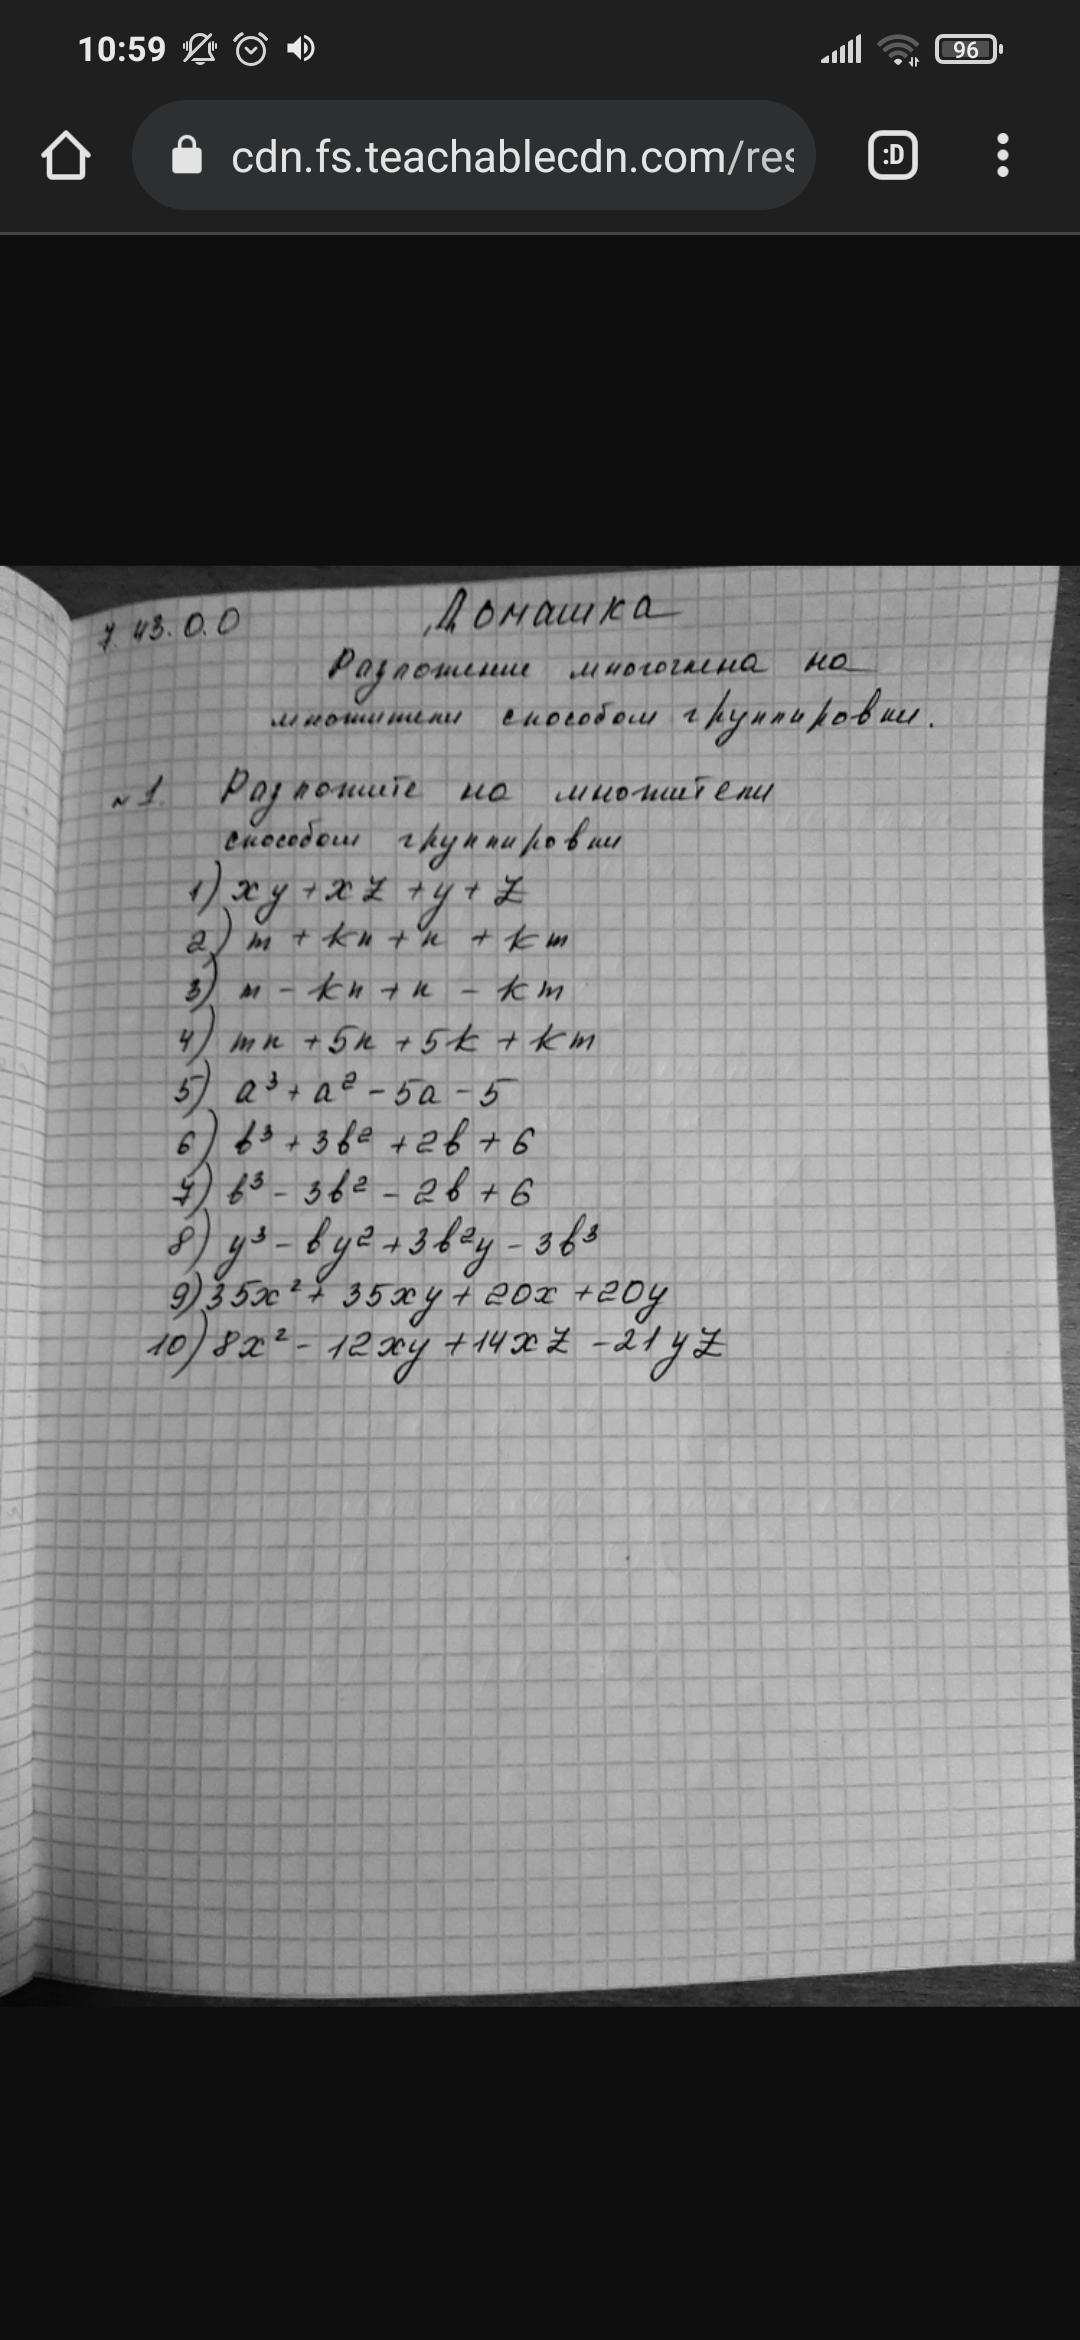 10:59
96
cdn.fs.teachablecdn.com/res
:D
7.43.0.0
Домашка
Разложение многочлена на
множители способом группировки.
№1. Разложите на множители
способом группировки
1) xy + xz + y + z
2) m + kn + n + km
3) m - kn + n - km
4) mn + 5n + 5k + km
5) a³ + a² - 5a - 5
6) b³ + 3b² + 2b + 6
7) b³ - 3b² - 2b + 6
8) y³ - by² + 3b²y - 3b³
9) 35x² + 35xy + 20x + 20y
10) 8x² - 12xy + 14xz - 21yz